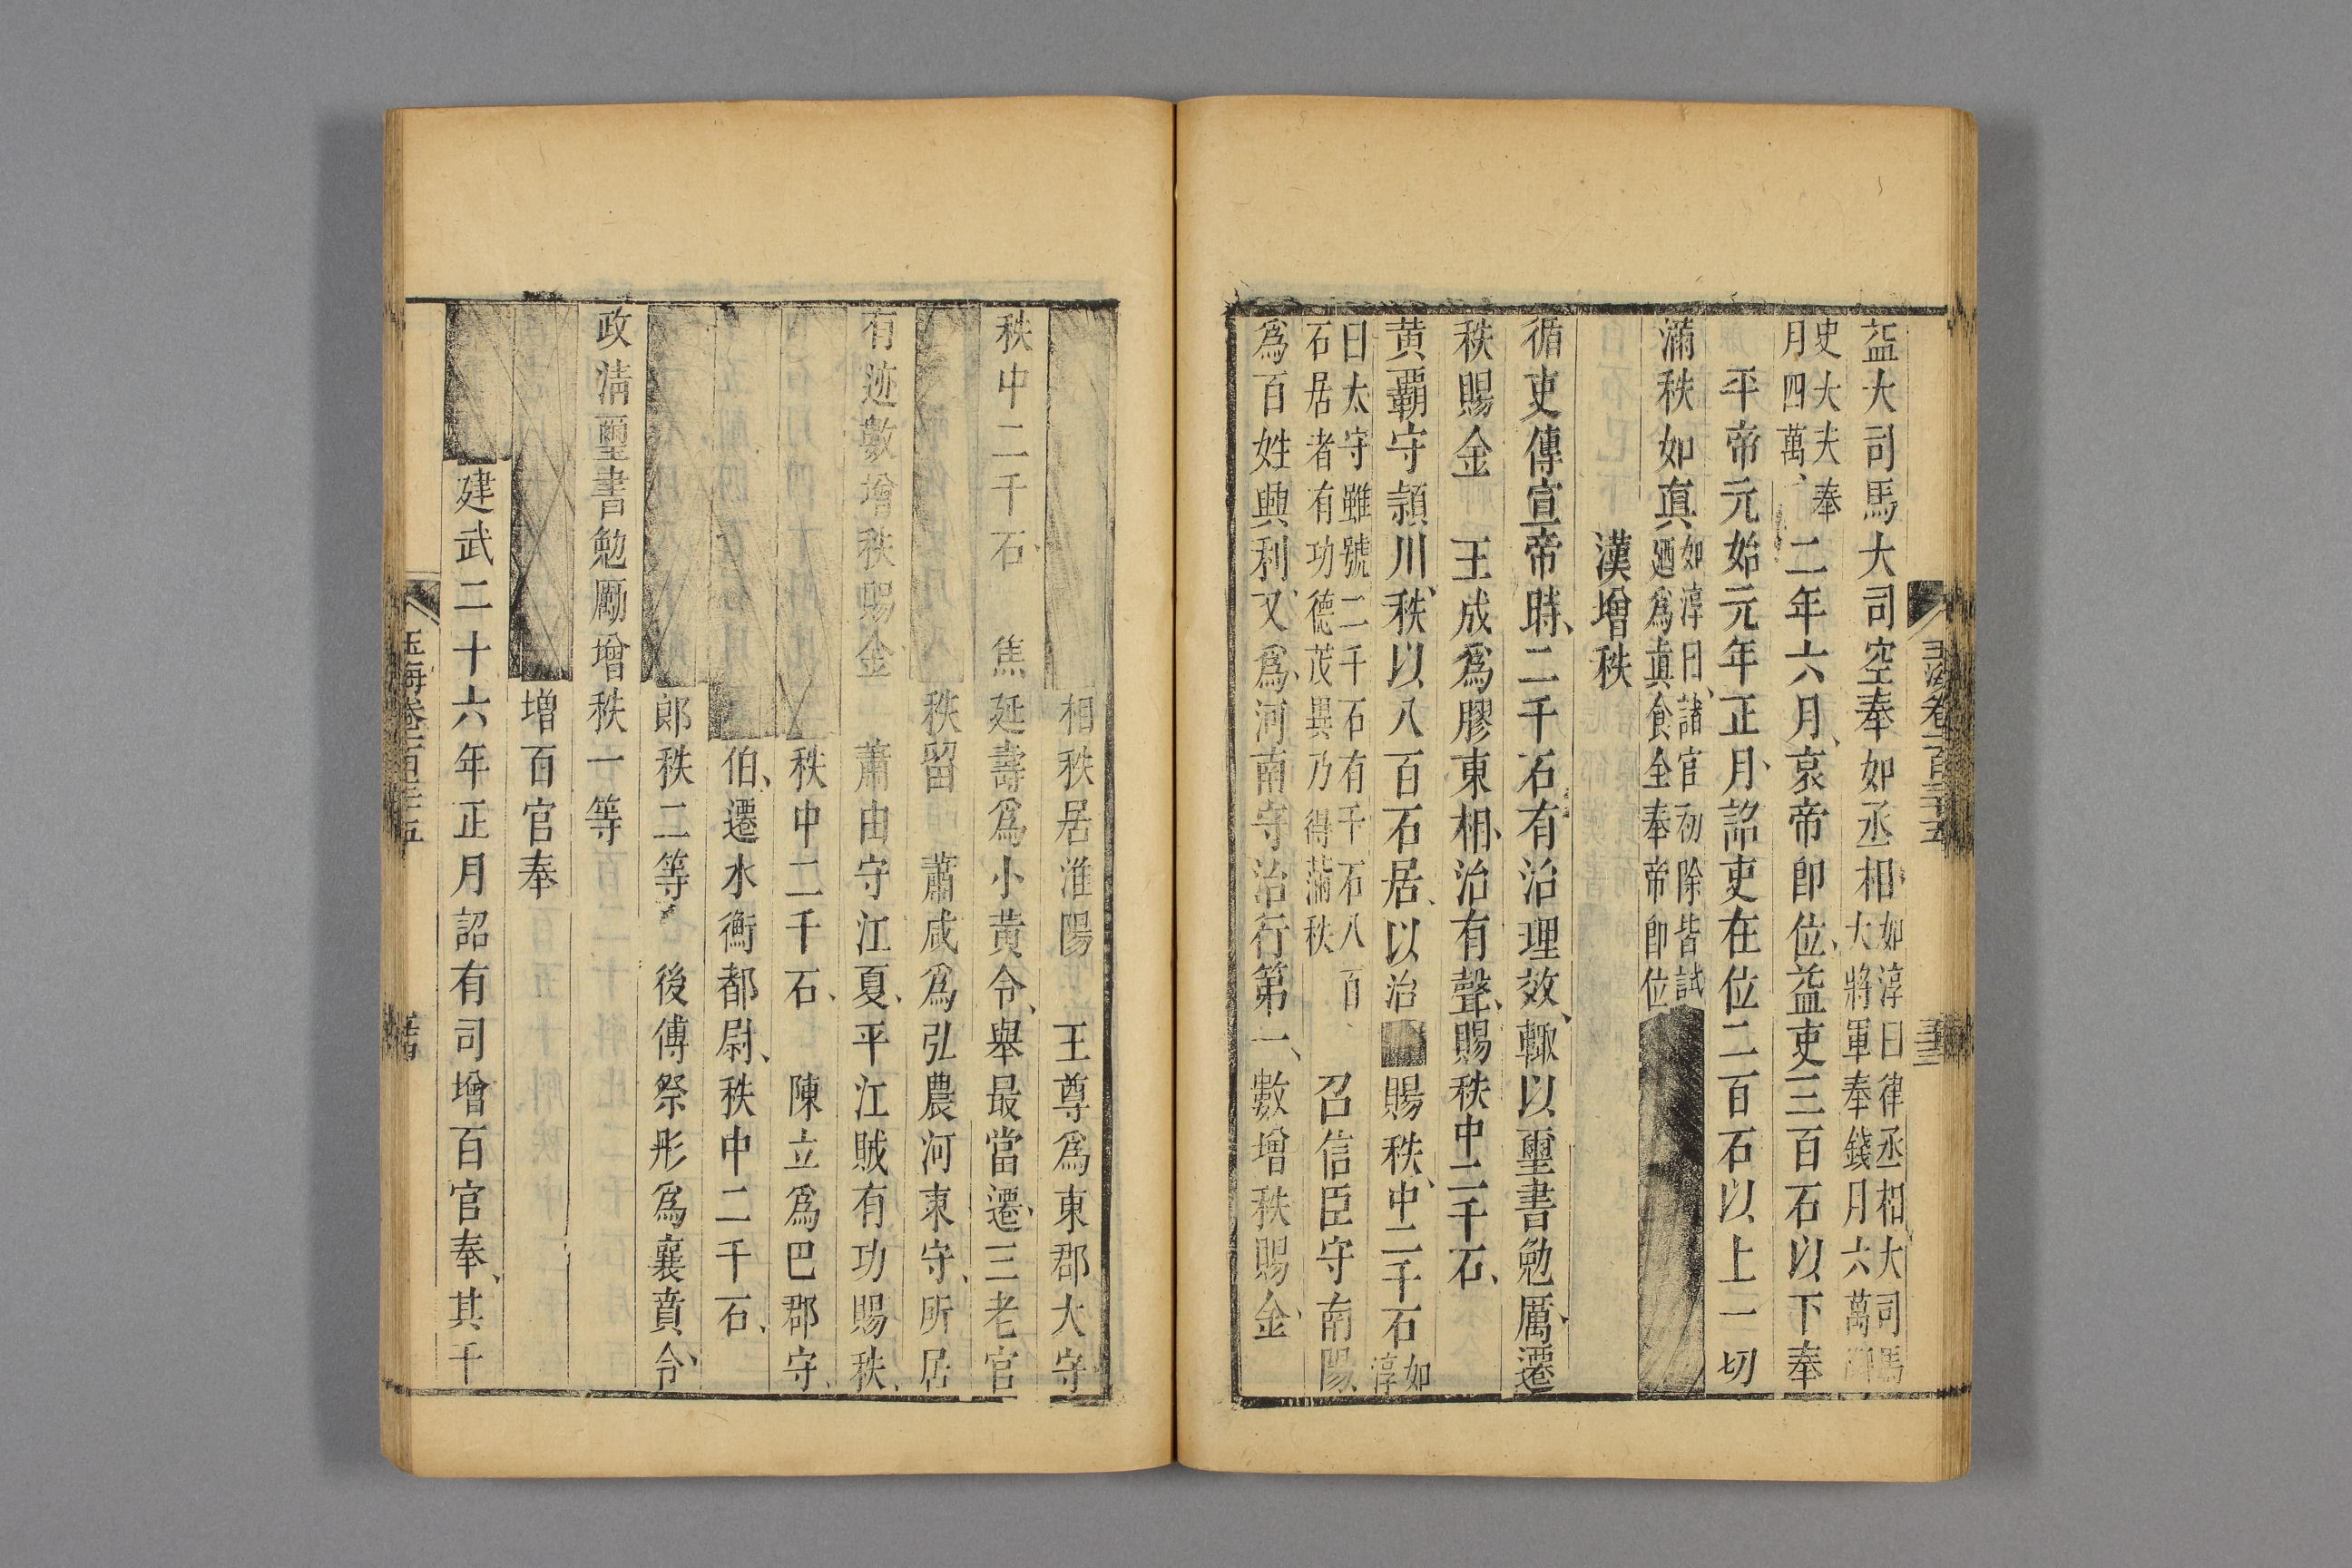 益大司馬大司空奉如丞相
如淳曰律丞相大司馬
大將軍奉錢月六萬御
史大夫奉
月四萬、
二年六月、哀帝即位、益吏三百石以下奉
平帝元始元年正月、詔吏在位二百石以上一切
滿秩如真
如淳曰、諸官初除皆試
廼為真食全奉帝即位
漢增秩
循吏傳宣帝時、二千石有治理效、輒以璽書勉厲、遷
秩賜金 王成為膠東相、治有聲、賜秩中二千石、
黃霸守頴川、秩以八百石居、以治 賜秩、中二千石
如
淳
曰太守雖號二千石有千石八百
石居者有功德茂異乃得滿秩
召信臣守南陽、
為百姓興利、又為、河南守治行第一、數增秩賜金、
相秩居淮陽 王尊為東郡大守
秩中二千石、 焦延壽為小黃令、舉最當遷、三老官
秩留 蕭咸為弘農河東守、所居
有迹數增秩賜金、 蕭由守江夏、平江賊有功賜秩、
秩中二千石、 陳立為巴郡守、
伯、遷水衡都尉、秩中二千石、
郎秩二等 後傅祭肜為襄賁令、
政清璽書勉勵增秩一等
增百官奉
建武二十六年正月詔有司增百官奉、其千
玉海卷一百三十五